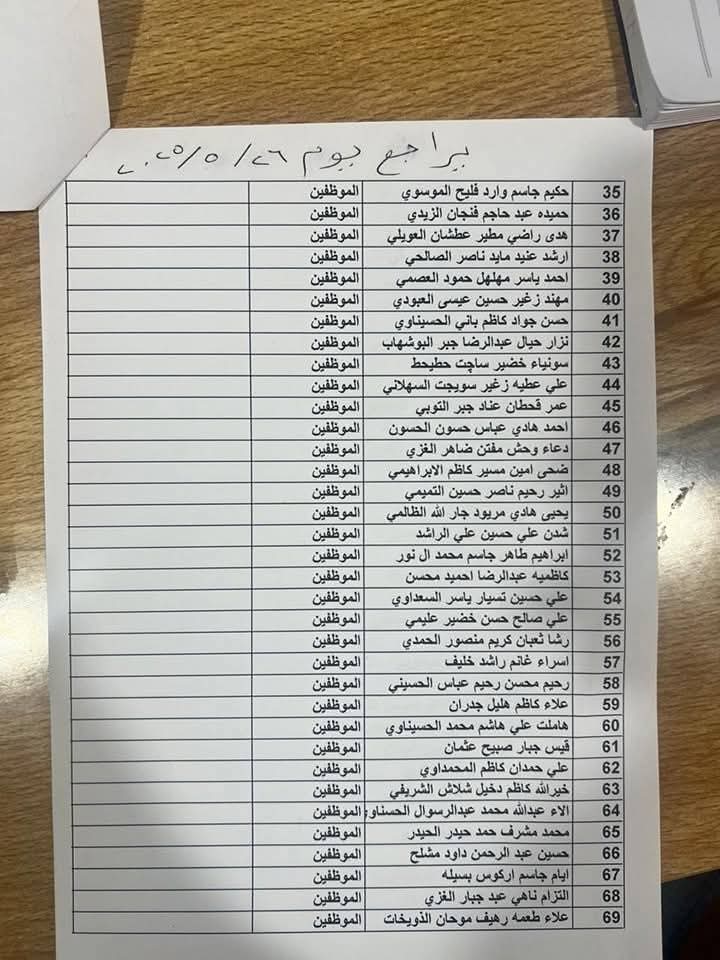 يراجع يوم ٢٦/٥/٢٠٢٥
35 حكيم جاسم وارد فليح الموسوي الموظفين
36 حميده عبد حاجم فنجان الزيدي الموظفين
37 هدى راضي مطير عطشان العويلي الموظفين
38 ارشد عنيد مايد ناصر الصالحي الموظفين
39 احمد ياسر مهلهل حمود العصمي الموظفين
40 مهند زغير حسين عيسى العبودي الموظفين
41 حسن جواد كاظم باني الحسيناوي الموظفين
42 نزار حيال عبدالرضا جبر البوشهاب الموظفين
43 سونياء خضير ساچت حطيحط الموظفين
44 علي عطيه زغير سويجت السهلاني الموظفين
45 عمر قحطان عناد جبر التوبي الموظفين
46 احمد هادي عباس حسون الحسون الموظفين
47 دعاء وحش مفتن ضاهر الغزي الموظفين
48 ضحى امين مسير كاظم الابراهيمي الموظفين
49 اثير رحيم ناصر حسين التميمي الموظفين
50 يحيى هادي مريود جار الله الظالمي الموظفين
51 شدن علي حسين علي الراشد الموظفين
52 ابراهيم طاهر جاسم محمد ال نور الموظفين
53 كاظميه عبدالرضا احميد محسن الموظفين
54 علي حسين تسيار ياسر السعداوي الموظفين
55 علي صالح حسن خضير عليمي الموظفين
56 رشا ثعبان كريم منصور الحمدي الموظفين
57 اسراء غانم راشد خليف الموظفين
58 رحيم محسن رحيم عباس الحسيني الموظفين
59 علاء كاظم هليل جدران الموظفين
60 هاملت علي هاشم محمد الحسيناوي الموظفين
61 قيس جبار صبيح عثمان الموظفين
62 علي حمدان كاظم المحمداوي الموظفين
63 خيرالله كاظم دخيل شلاش الشريفي الموظفين
64 الاء عبدالله محمد عبدالرسوال الحسناوي الموظفين
65 محمد مشرف حمد حيدر الحيدر الموظفين
66 حسين عبد الرحمن داود مشلح الموظفين
67 ايام جاسم اركوس بسيله الموظفين
68 التزام ناهي عبد جبار الغزي الموظفين
69 علاء طعمه رهيف موحان الذويخات الموظفين